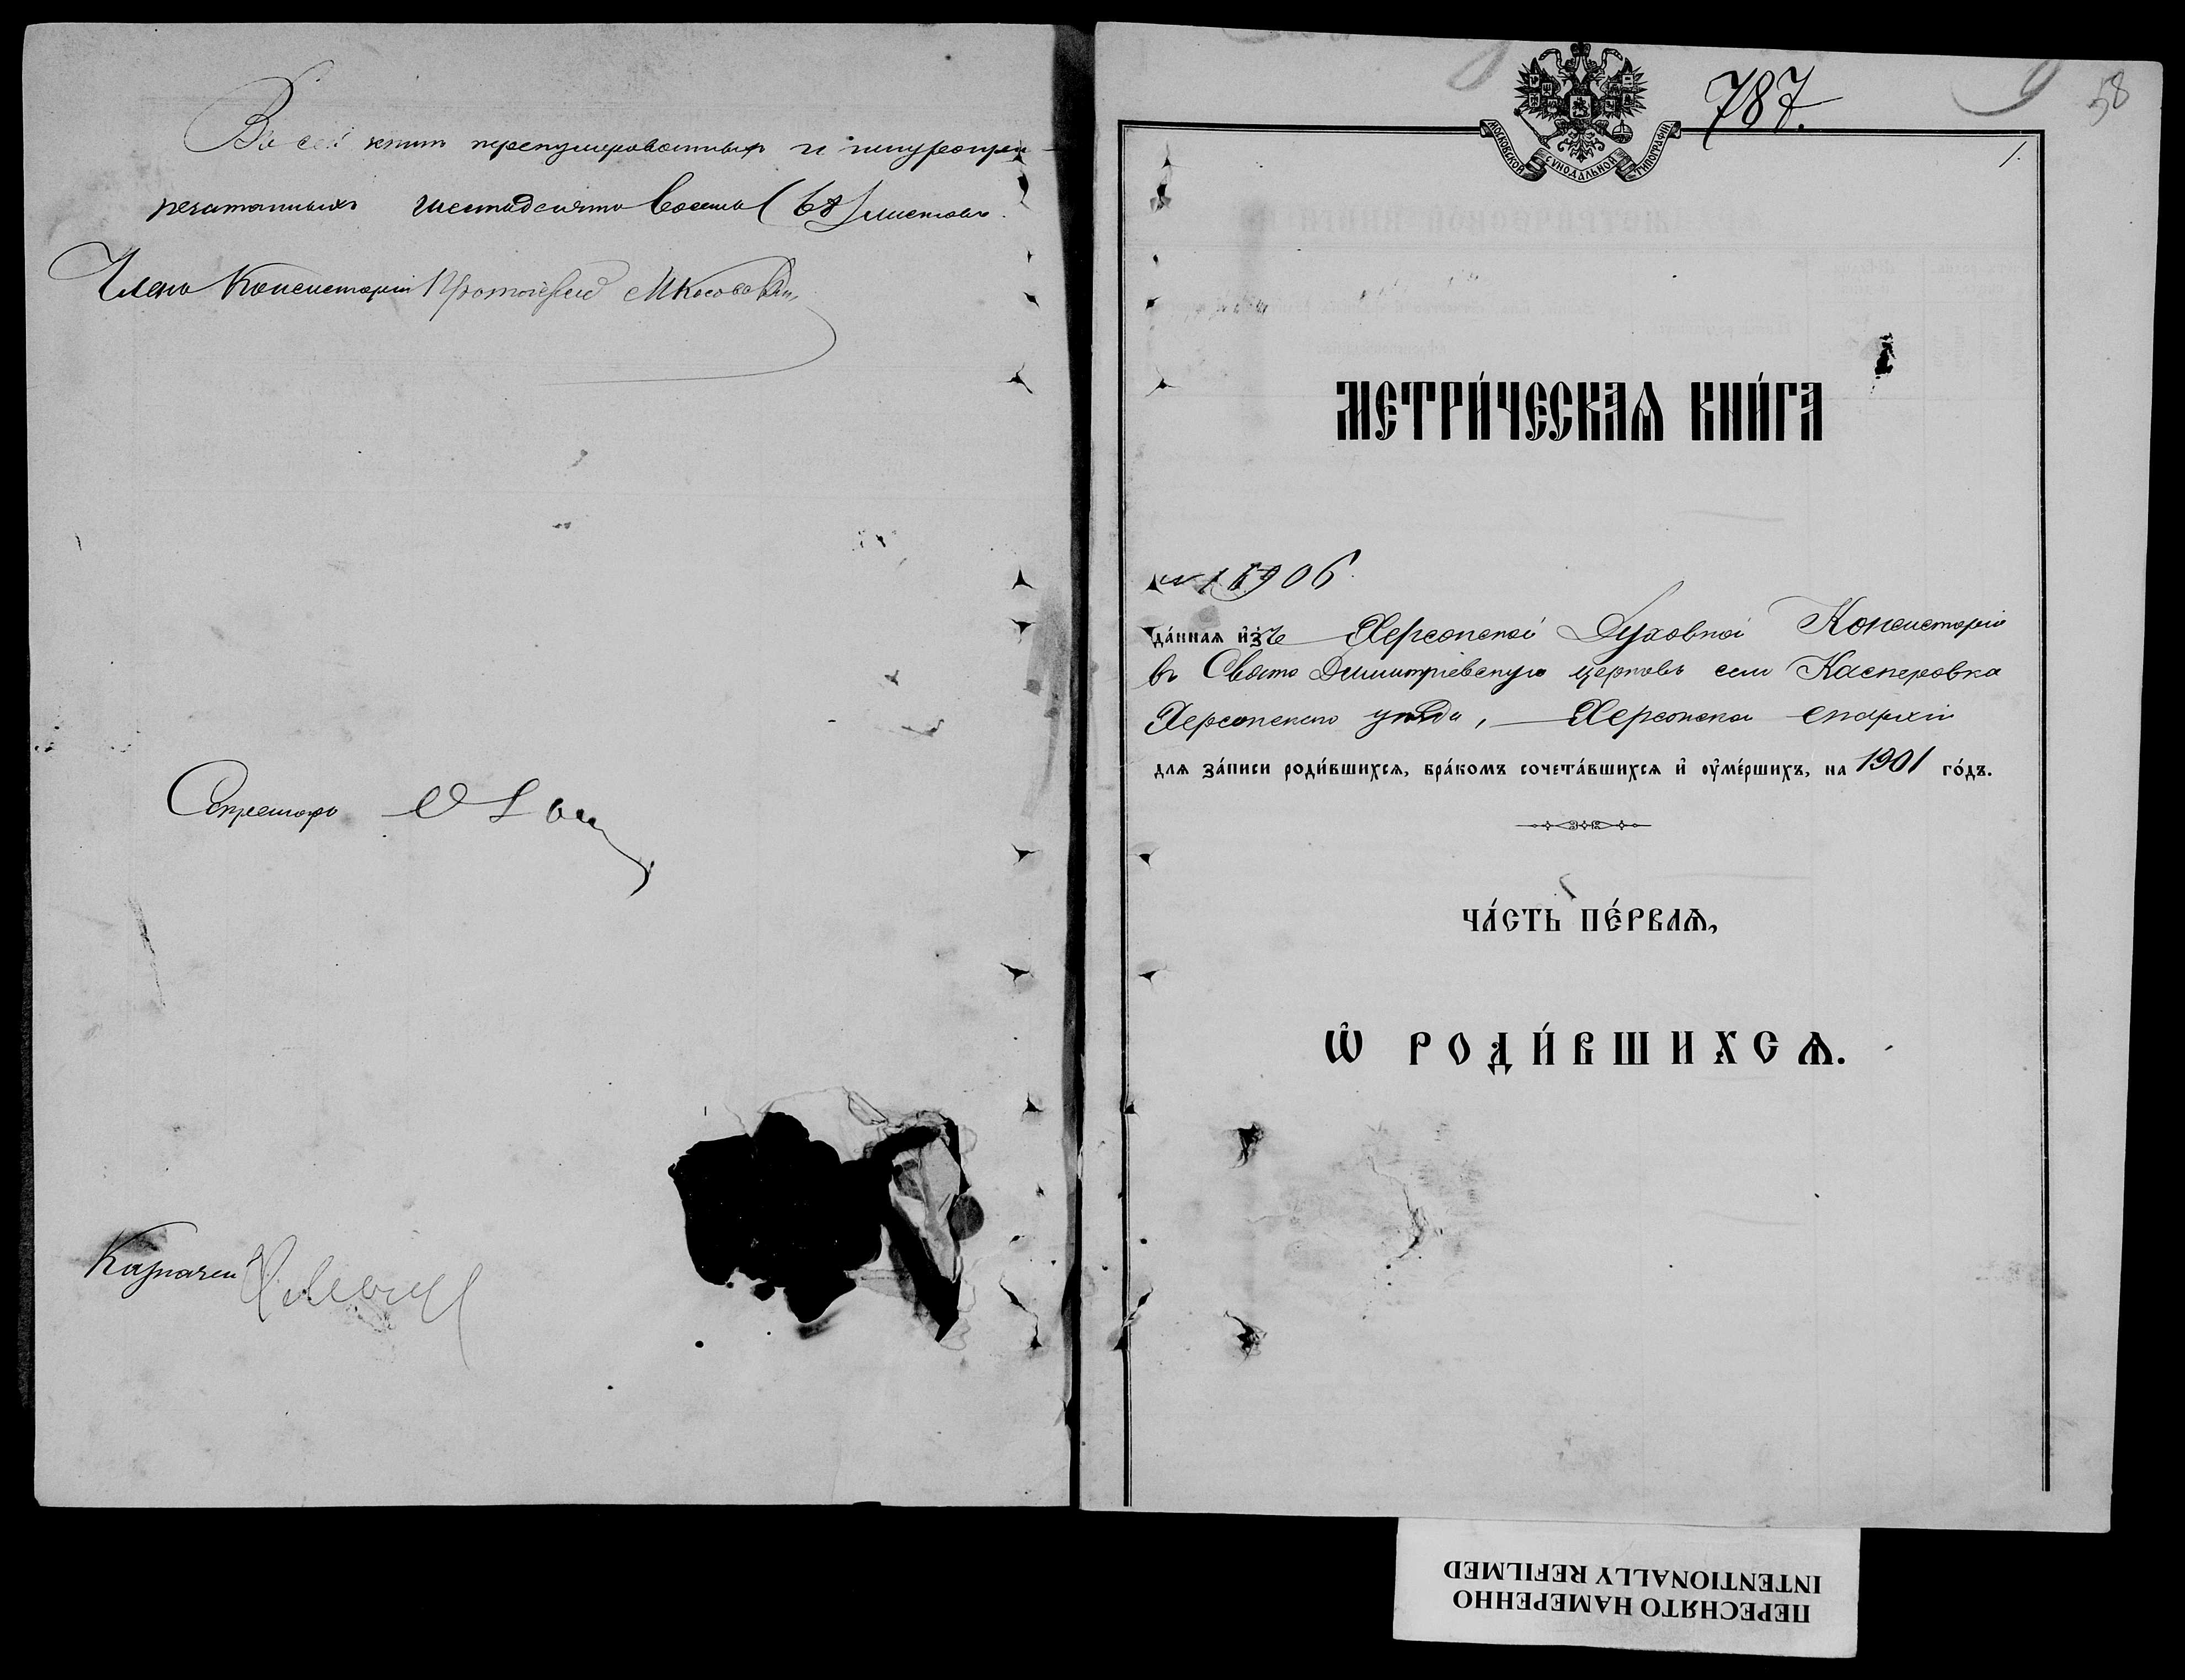 Въ сей книгѣ перенумерованныхъ и шнуропри-
печатанныхъ шестьдесятъ восемь (68) листовъ.
Членъ Консисторіи Протоіерей
Секретарь
Казначей
787.
58
1.
МОСКОВСКОЙ СѴНОДАЛЬНОЙ ТИПОГРАФІИ
МЕТРИ́ЧЕСКАѦ КНИ́ГА
906
да́нная и҆зъ Херсонской Духовной Консисторіи
въ Свято Димитріевскую церковь села Касперовка
Херсонскаго уѣзда, Херсонской епархіи
для за́писи роди́вшихся, бра́комъ сочета́вшихся и҆ ᲂу҆ме́ршихъ, на 1901 го́дъ.
ЧА́СТЬ ПЕ́РВАѦ,
Ѡ҆ РОДИ́ВШИХСѦ.
ПЕРЕСНЯТО НАМЕРЕННО
INTENTIONALLY REFILMED